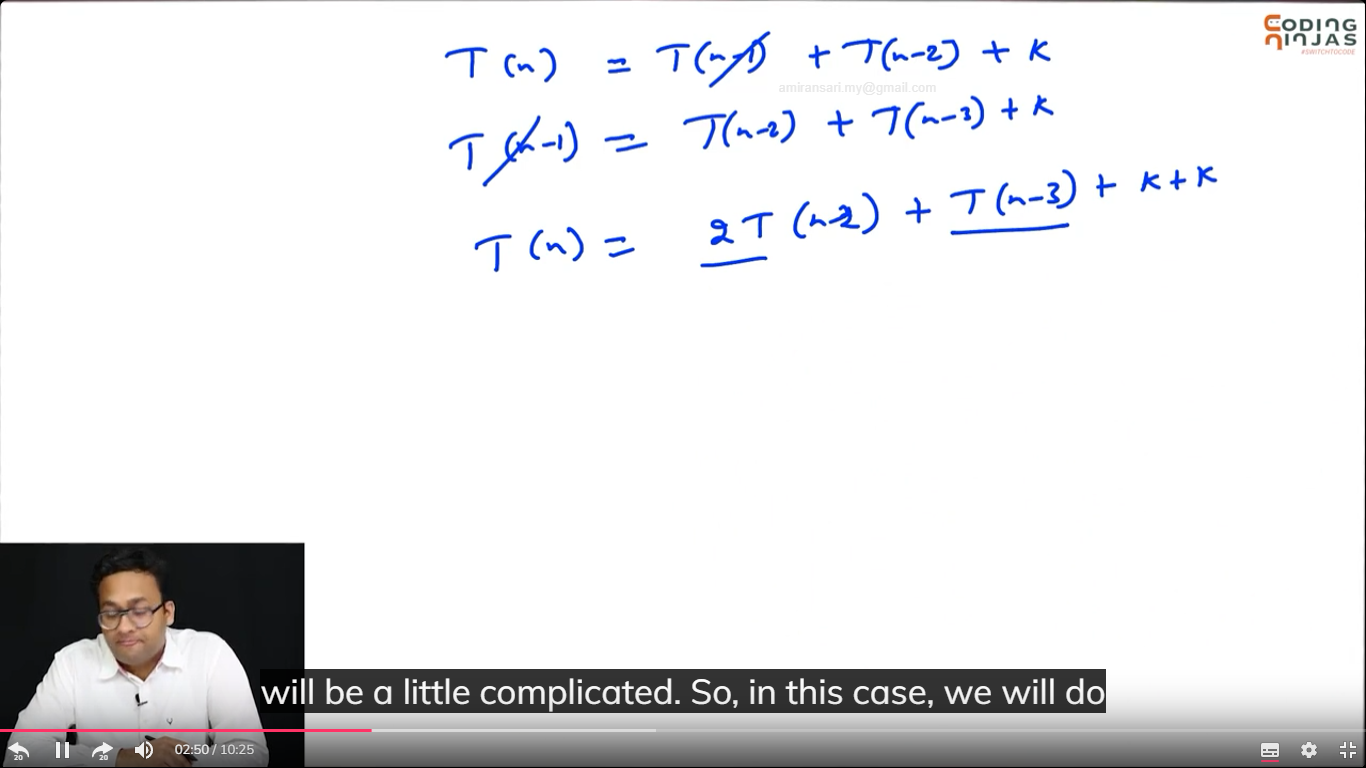 CODING
NINJAS
#SWITCHTOCODE
T(n) = T(n-1) + T(n-2) + k
amiransari.my@gmail.com
T(n-1) = T(n-2) + T(n-3) + k
T(n) = 2T(n-2) + T(n-3) + k+k
will be a little complicated. So, in this case, we will do
20 20 02:50 / 10:25